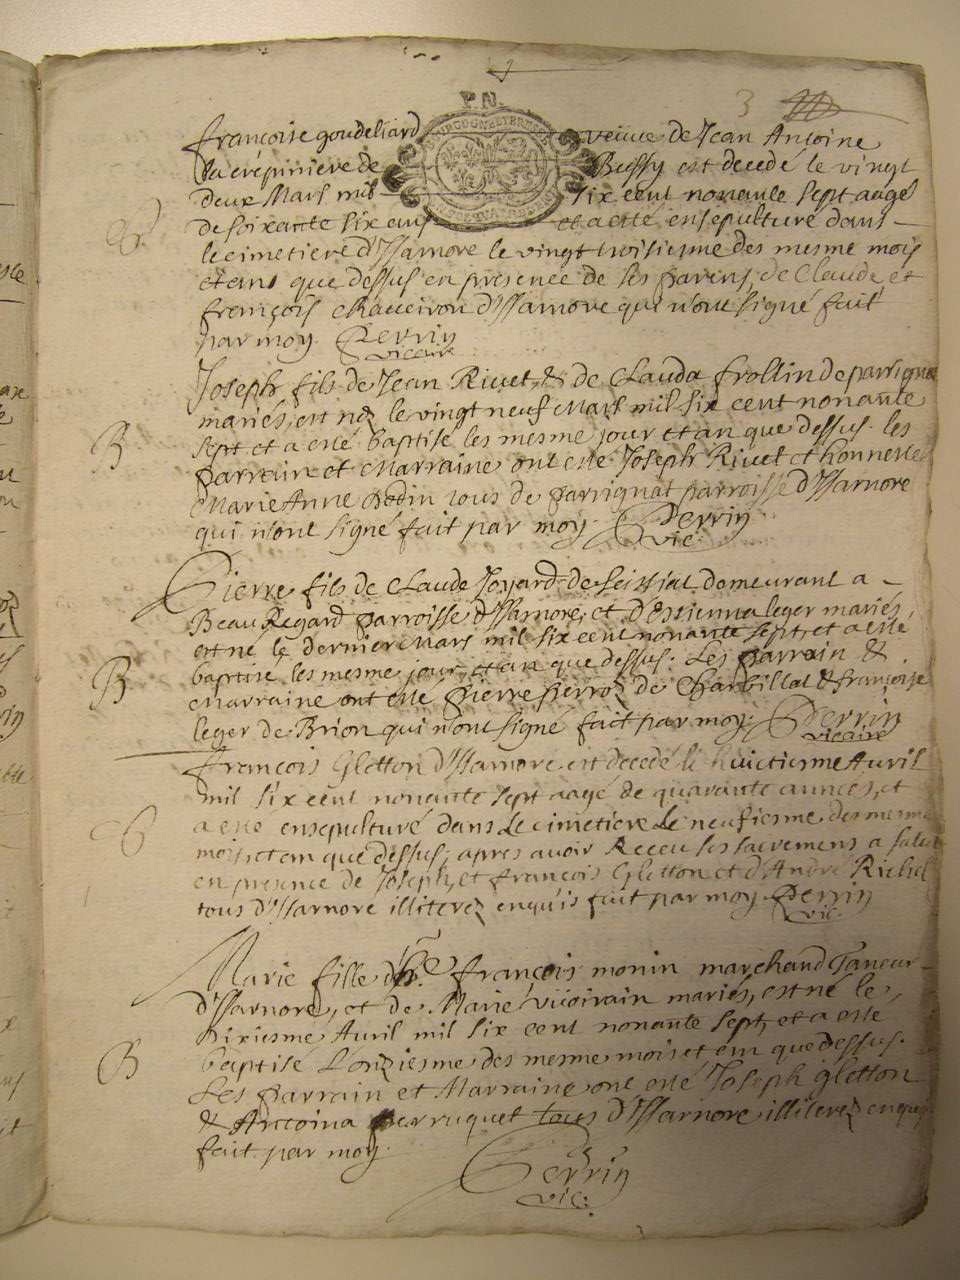 P.N.
3
françoise goudeliard veuve de Jean Antoine
la crépiniere de Bussy est decedé le vingt
deux Mars mil six cent nonante sept aagé
de soixante six ans et a esté ensepulturé dans
le cimetiere d'Issarnore le vingt troisiesme des mesme mois
et an que dessus en presence de ses parens, de Claude et
françois d'Issarnore qui n'ont signé fait
par moy. Perrin
vicaire
B
Joseph fils de Jean Rivet & de Clauda frollin de
mariés, est né le vingt neuf Mars mil six cent nonante
sept et a esté baptisé les mesme jour et an que dessus. les
parrain et Marraine ont esté Joseph Rivet et honneste
Marie Anne Bodin tous de parrignat parroisse d'Issarnore
qui n'ont signé fait par moy. Perrin
vic.
B
Pierre fils de Claude Joyard de demeurant a
Beau Regard parroisse d'Issarnore, et d'Estienna leger mariés,
est né le dernier Mars mil six cent nonante sept, et a esté
baptisé les mesme jour et an que dessus. Les parrain &
Marraine ont esté pierre de Charbillat & françoise
leger de Brion qui n'ont signé fait par moy. Perrin
vicaire
françois Gletton d'Issarnore est decedé le huictiesme Avril
mil six cent nonante sept aagé de quarante années, et
a esté ensepulturé dans le cimetiere le neufiesme des mesme
mois et an que dessus, apres avoir Receu les sacremens a
en presence de Joseph, et françois Gletton et d'André
tous d'Issarnore illiterez enquis fait par moy Perrin
vic.
B
Marie fille d' hble françois monin marchand Taneur
d'Issarnore, et de Marie mariés, est né le
dixiesme Avril mil six cent nonante sept, et a esté
baptisé l'onziesme des mesme mois et an que dessus.
Les parrain et Marraine ont esté Joseph gletton
& Antoina perruquet tous d'Issarnore illiterez enquis
fait par moy.
Perrin
vic.